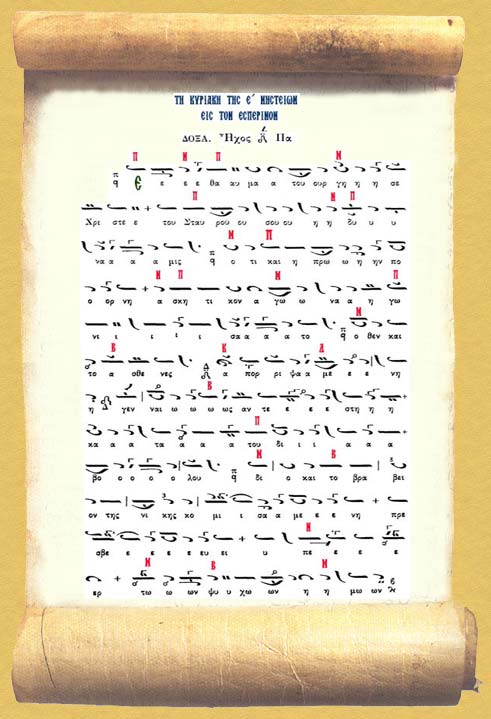 ΤΗ ΚΥΡΙΑΚΗ ΤΗΣ Ε΄ ΝΗΣΤΕΙΩΝ
ΕΙΣ ΤΟΝ ΕΣΠΕΡΙΝΟΝ
ΔΟΞΑ. Ἦχος Πα
Ε ε ε ε θα αυ μα α του ουρ γη η η σε
Χρι στε ε του Σταυ ρου ου σου ου η η δυ υ υ
να α α α μις ο τι και η πρω ω η ην πο
ο ορ νη α σκη τι κον α γω ω να α η γω
νι ι ι ι ι σα α α α το ο θεν και
το α σθε νες α πορ ρι ψα α με ε ε νη
η γεν ναι ω ω ω ως αν τε ε ε ε στη η η
κα α α τα α α α του δι ι ι α α α
βο ο ο ο ο λου δι ο και το βρα βει
ον της νι κης κο μι ι σα α με ε ε νη πρε
σβε ε ε ε ε ευ ει υ πε ε ε ε ε
ερ τω ω ων ψυ υ χω ων η η μω ων